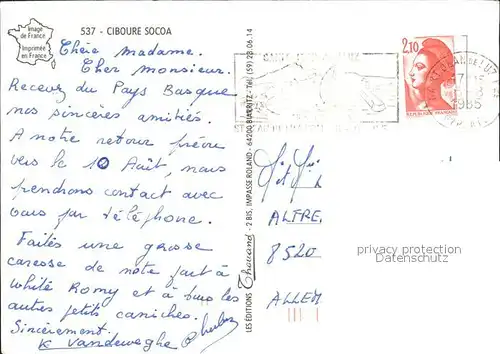 Image
de France
Imprimée
en France
537 - CIBOURE SOCOA
Chère Madame.
Cher Monsieur.
Recevez du Pays Basque
nos sincères amitiés.
A notre retour prévu
vers le 10 Août, nous
prendrons contact avec
vous par téléphone.
Faites une grosse
caresse de notre part à
white Romy et à tous les
autres petits caniches.
Sincèrement.
K Vandeweghe
LES ÉDITIONS Thouand - 2 BIS, IMPASSE ROLAND - 64200 BIARRITZ - Tél. (59) 23.06.14
2,10
REPUBLIQUE FRANÇAISE
1985
ALFRE
8520
ALLEM
privacy protection
Datenschutz